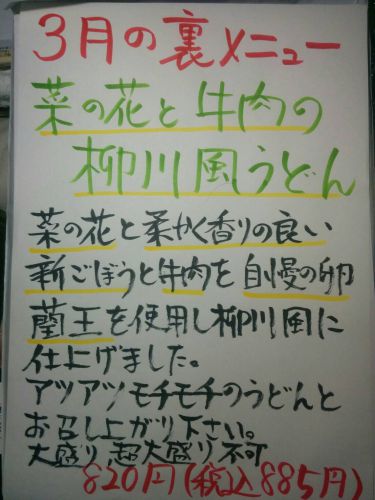 3月の裏メニュー
菜の花と牛肉の
柳川風うどん
菜の花と柔やかく香りの良い
新ごぼうと牛肉を自慢の卵
蘭王を使用し柳川風に
仕上げました。
アツアツモチモチのうどんと
お召し上がり下さい。
大盛り 超大盛り不可
820円(税込885円)